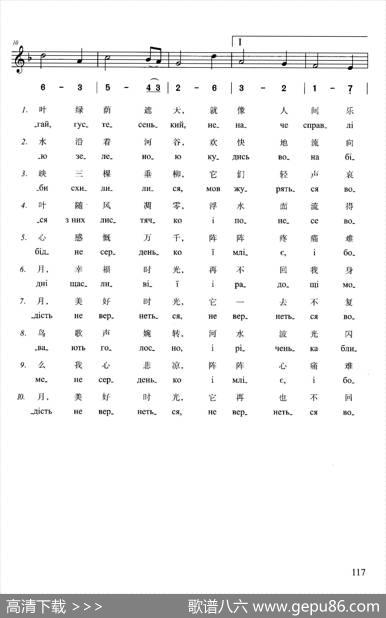 10
1
6 - 3 | 5 - 4 3 | 2 - 6 | 3 - 2 | 1 - 7
1. 叶 绿 荫 遮 天， 就 像 人 间 乐
„гай, гус„ те„ сень„ кий, ис„ на„ че справ„ лі
2. 水 沿 着 河 谷， 欢 快 地 流 向
„ю зе„ ле„ но„ ю ку„ дись во„ на бі„
3. 映 三 棵 垂 柳， 它 们 轻 声 哀
„би схи„ ли„ ли„ ся, мов жу„ рять„ ся во„
4. 叶 随 风 凋 零， 浮 水 面 流 得
„ся з них лис„ тяч„ ко і по„ не„ се во„
5. 心 感 慨 万 千， 阵 阵 疼 痛 难
бід„ не сер„ день„ ко і млі„ є, і бо„
6. 月， 幸 福 时 光， 再 不 回 我 身
дні щас„ ли„ ві„ ї і ра„ до„ щі мо„
7. 月， 美 好 时 光， 它 一 去 不 复
„дість не вер„ неть„ ся, не вер„ неть„ ся во„
8. 鸟 歌 声 婉 转， 河 水 波 光 闪
„ва„ ють го„ лос„ но, і рі„ чень„ ка бли„
9. 么 我 心 悲 凉， 阵 阵 心 痛 难
ме„ не сер„ день„ ко і млі„ є, і бо„
10. 月， 美 好 时 光， 它 再 也 不 回
„дість не вер„ неть„ ся, не вер„ неть„ ся во„
117
高清下载 >>> 歌谱八六 www.gepu86.com